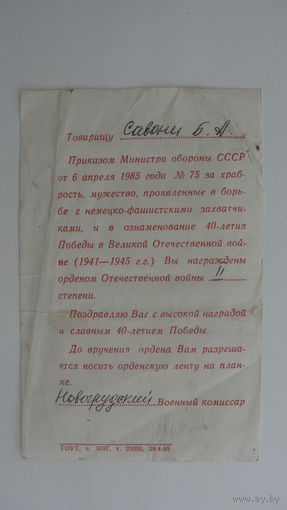 Товарищу Савони Б. А.
Приказом Министра обороны СССР
от 6 апреля 1985 года № 75 за храб-
рость, мужество, проявленные в борь-
бе с немецко-фашистскими захватчи-
ками, и в ознаменование 40-летия
Победы в Великой Отечественной вой-
не (1941—1945 г.г.) Вы награждены
орденом Отечественной войны II
степени.
Поздравляю Вас с высокой наградой
и славным 40-летием Победы
До вручения ордена Вам разреша-
ется носить орденскую ленту на план-
ке.
Новогрудский Военный комиссар
ГОУТ, з. 3097, т. 23000, 29.4-85
ay.by